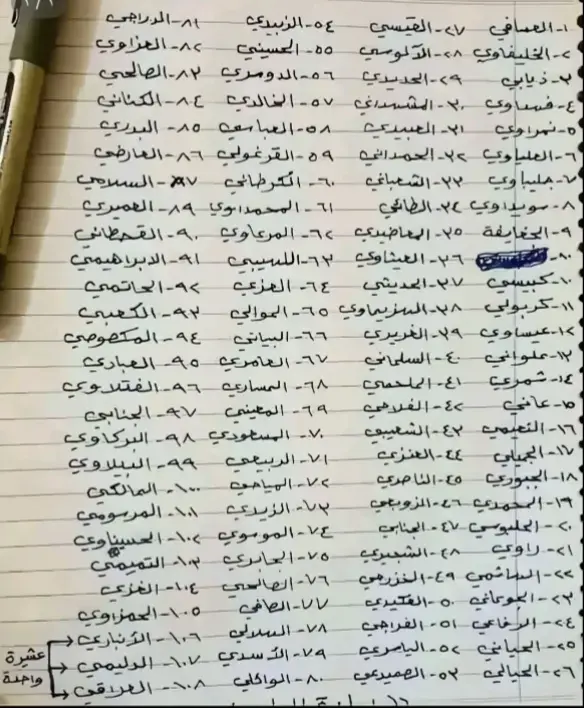 ١- العسافي
٢- الخليفاوي
٣- ذيابي
٤- فهداوي
٥- نمراوي
٦- العلياوي
٧- جليباوي
٨- سويداوي
٩- الخفاجة
١٠- كبيسي
١١- كربولي
١٢- عيساوي
١٣- علواني
١٤- شمري
١٥- عاني
١٦- النعيمي
١٧- الجميلي
١٨- الجبوري
١٩- المحمدي
٢٠- الحلبوسي
٢١- راوي
٢٢- الهاشمي
٢٣- الجوعاني
٢٤- الرفاعي
٢٥- الحياني
٢٦- الحيالي
٢٧- القيسي
٢٨- الآلوسي
٢٩- الحديدي
٣٠- المشهداني
٣١- العبيدي
٣٢- الحمداني
٣٣- الشعباني
٣٤- الطائي
٣٥- المعاضيدي
٣٦- العيثاوي
٣٧- الحديثي
٣٨- الهزيماوي
٣٩- الغريري
٤٠- السلماني
٤١- الملحمي
٤٢- الفلاحي
٤٣- الشعيبي
٤٤- العنزي
٤٥- الناصري
٤٦- الزوبعي
٤٧- الجنابي
٤٨- الشجيري
٤٩- الخزرجي
٥٠- العكيدي
٥١- الفراجي
٥٢- الياسري
٥٣- الصميدعي
٥٤- الزبيدي
٥٥- الحسيني
٥٦- الدوسري
٥٧- الخالدي
٥٨- العباسي
٥٩- القرغولي
٦٠- الكرطاني
٦١- المحمداوي
٦٢- المرعاوي
٦٣- اللهيبي
٦٤- العزي
٦٥- الموالي
٦٦- البياتي
٦٧- العامري
٦٨- المساري
٦٩- المعيني
٧٠- المسعودي
٧١- الربيعي
٧٢- المياحي
٧٣- الزيدي
٧٤- الموسوي
٧٥- الحائري
٧٦- الصالحي
٧٧- الصافي
٧٨- السهلاني
٧٩- الأسدي
٨٠- الوائلي
٨١- الدراجي
٨٢- العزاوي
٨٣- الصالحي
٨٤- الكناني
٨٥- البدري
٨٦- العارضي
٨٧- السلامي
٨٩- العميري
٩٠- القحطاني
٩١- الابراهيمي
٩٢- الحاتمي
٩٣- الكعبي
٩٤- المكصوصي
٩٥- العبادي
٩٦- الفتلاوي
٩٧- الجنابي
٩٨- البركاوي
٩٩- البيلاوي
١٠٠- المالكي
١٠١- المرسومي
١٠٢- الحسيناوي
١٠٣- التميمي
١٠٤- الغزي
١٠٥- الحمزاوي
١٠٦- الأنباري
١٠٧- الدليمي
١٠٨- العراقي
عشيرة
واحدة